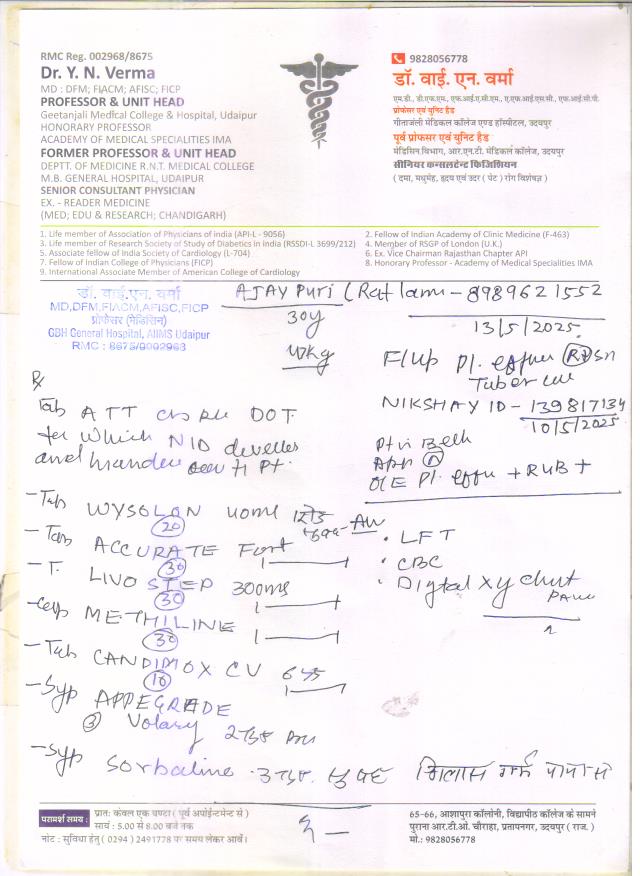 RMC Reg. 002968/8675
Dr. Y. N. Verma
MD : DFM; FIACM; AFISC; FICP
PROFESSOR & UNIT HEAD
Geetanjali Medical College & Hospital, Udaipur
HONORARY PROFESSOR
ACADEMY OF MEDICAL SPECIALITIES IMA
FORMER PROFESSOR & UNIT HEAD
DEPTT. OF MEDICINE R.N.T. MEDICAL COLLEGE
M.B. GENERAL HOSPITAL, UDAIPUR
SENIOR CONSULTANT PHYSICIAN
EX. - READER MEDICINE
(MED; EDU & RESEARCH; CHANDIGARH)
9828056778
डॉ. वाई. एन. वर्मा
एम.डी., डी.एफ.एम., एफ.आई.ए.सी.एम., ए.एफ.आई.एस.सी., एफ.आई.सी.पी.
प्रोफेसर एवं यूनिट हैड
गीतांजली मेडिकल कॉलेज एण्ड हॉस्पीटल, उदयपुर
पूर्व प्रोफेसर एवं यूनिट हैड
मेडिसिन विभाग, आर.एन.टी. मेडिकल कॉलेज, उदयपुर
सीनियर कन्सलटेन्ट फिजिशियन
( दमा, मधुमेह, हृदय एवं उदर ( पेट ) रोग विशेषज्ञ )
1. Life member of Association of Physicians of india (API-L - 9056)
2. Fellow of Indian Academy of Clinic Medicine (F-463)
3. Life member of Research Society of Study of Diabetics in india (RSSDI-L 3699/212)
4. Member of RSGP of London (U.K.)
5. Associate fellow of India Society of Cardiology (L-704)
6. Ex. Vice Chairman Rajasthan Chapter API
7. Fellow of Indian College of Physicians (FICP)
8. Honorary Professor - Academy of Medical Specialities IMA
9. International Associate Member of American College of Cardiology
डॉ. वाई.एन. वर्मा
MD,DFM,FIACM,AFISC,FICP
प्रोफेसर (मेडिसिन)
GBH General Hospital, AIIMS Udaipur
RMC : 8675/0002963
AJAY Puri (Ratlam - 8989621552
30y
13/5/2025
F/up Pl. effu
NIKSHAY ID - 139817134
10/5/2025
Tab ATT DOT
for which NID
- Tab WYSOLON
20
- Tab ACCURATE Fort
30
- T. LIVO STEP 300mg
30
- Cap METHILINE
30
- Tab CANDIMOX CV 625
10
- Syp APPEGRADE
3
- Syp Sorbaline
· LFT
· CBC
· Digital Xy chest
परामर्श समय :
प्रात: केवल एक घण्टा ( पूर्व अपॉईन्टमेन्ट से )
सायं : 5.00 से 8.00 बजे तक
नोट : सुविधा हेतु ( 0294 ) 2491778 पर समय लेकर आवें।
65-66, आशापुरा कॉलोनी, विद्यापीठ कॉलेज के सामने
पुराना आर.टी.ओ. चौराहा, प्रतापनगर, उदयपुर ( राज. )
मो.: 9828056778